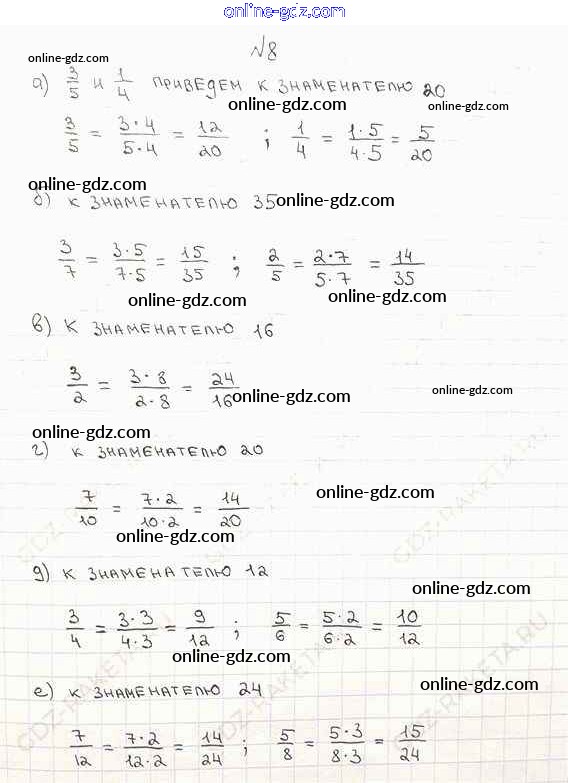 online-gdz.com
№8
online-gdz.com
а) 3/5 и 1/4 приведем к знаменателю 20
online-gdz.com online-gdz.com
3/5 = 3·4/5·4 = 12/20 ; 1/4 = 1·5/4·5 = 5/20
online-gdz.com
б) к знаменателю 35 online-gdz.com
3/7 = 3·5/7·5 = 15/35 ; 2/5 = 2·7/5·7 = 14/35
online-gdz.com online-gdz.com
в) к знаменателю 16
3/2 = 3·8/2·8 = 24/16
online-gdz.com online-gdz.com
online-gdz.com
г) к знаменателю 20
7/10 = 7·2/10·2 = 14/20
online-gdz.com
online-gdz.com
GDZ-RAKETA.RU
GDZ-RAKETA.RU
д) к знаменателю 12
online-gdz.com
3/4 = 3·3/4·3 = 9/12 ; 5/6 = 5·2/6·2 = 10/12
online-gdz.com
е) к знаменателю 24
online-gdz.com
7/12 = 7·2/12·2 = 14/24 ; 5/8 = 5·3/8·3 = 15/24
GDZ-RAKETA.RU
GDZ-RAKETA.RU